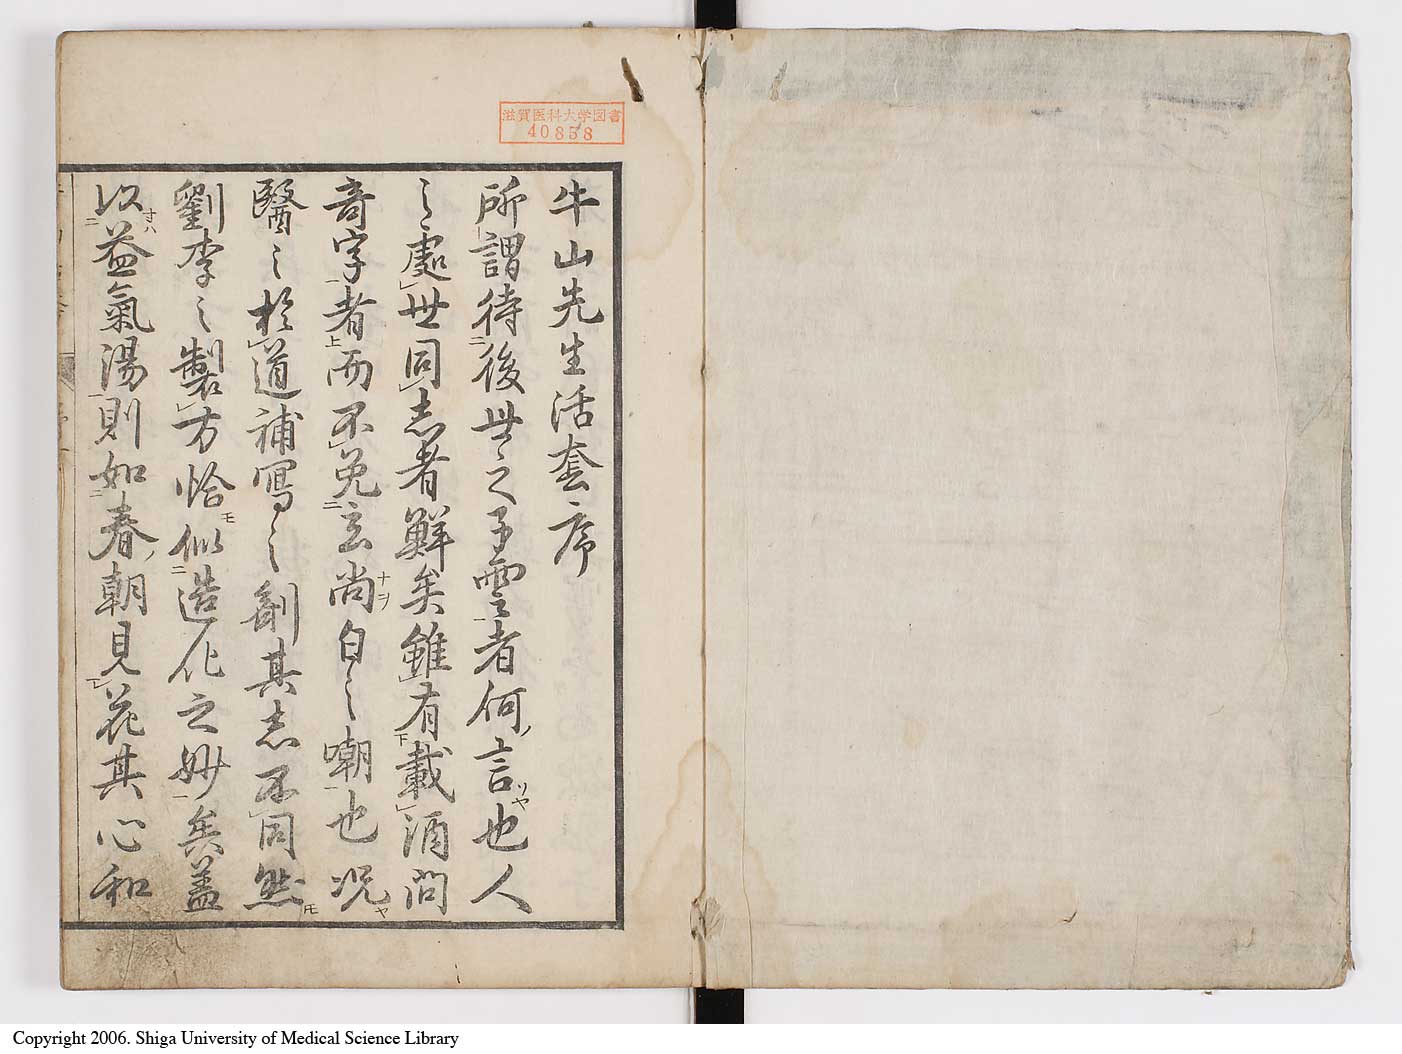 滋賀医科大学図書
40858
牛山先生活套序
所謂待後世之子雲者何言也人
之處世同志者鮮矣雖有載酒問
奇字者而不免玄尚白之嘲也况
醫之於道補寫之劑其志不同然
劉李之製方恰似造化之妙矣蓋
以益氣湯則如春朝見花其心和
Copyright 2006. Shiga University of Medical Science Library